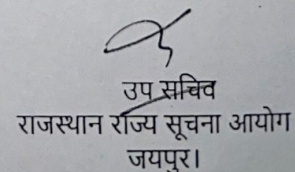 उप सचिव
राजस्थान राज्य सूचना आयोग
जयपुर।